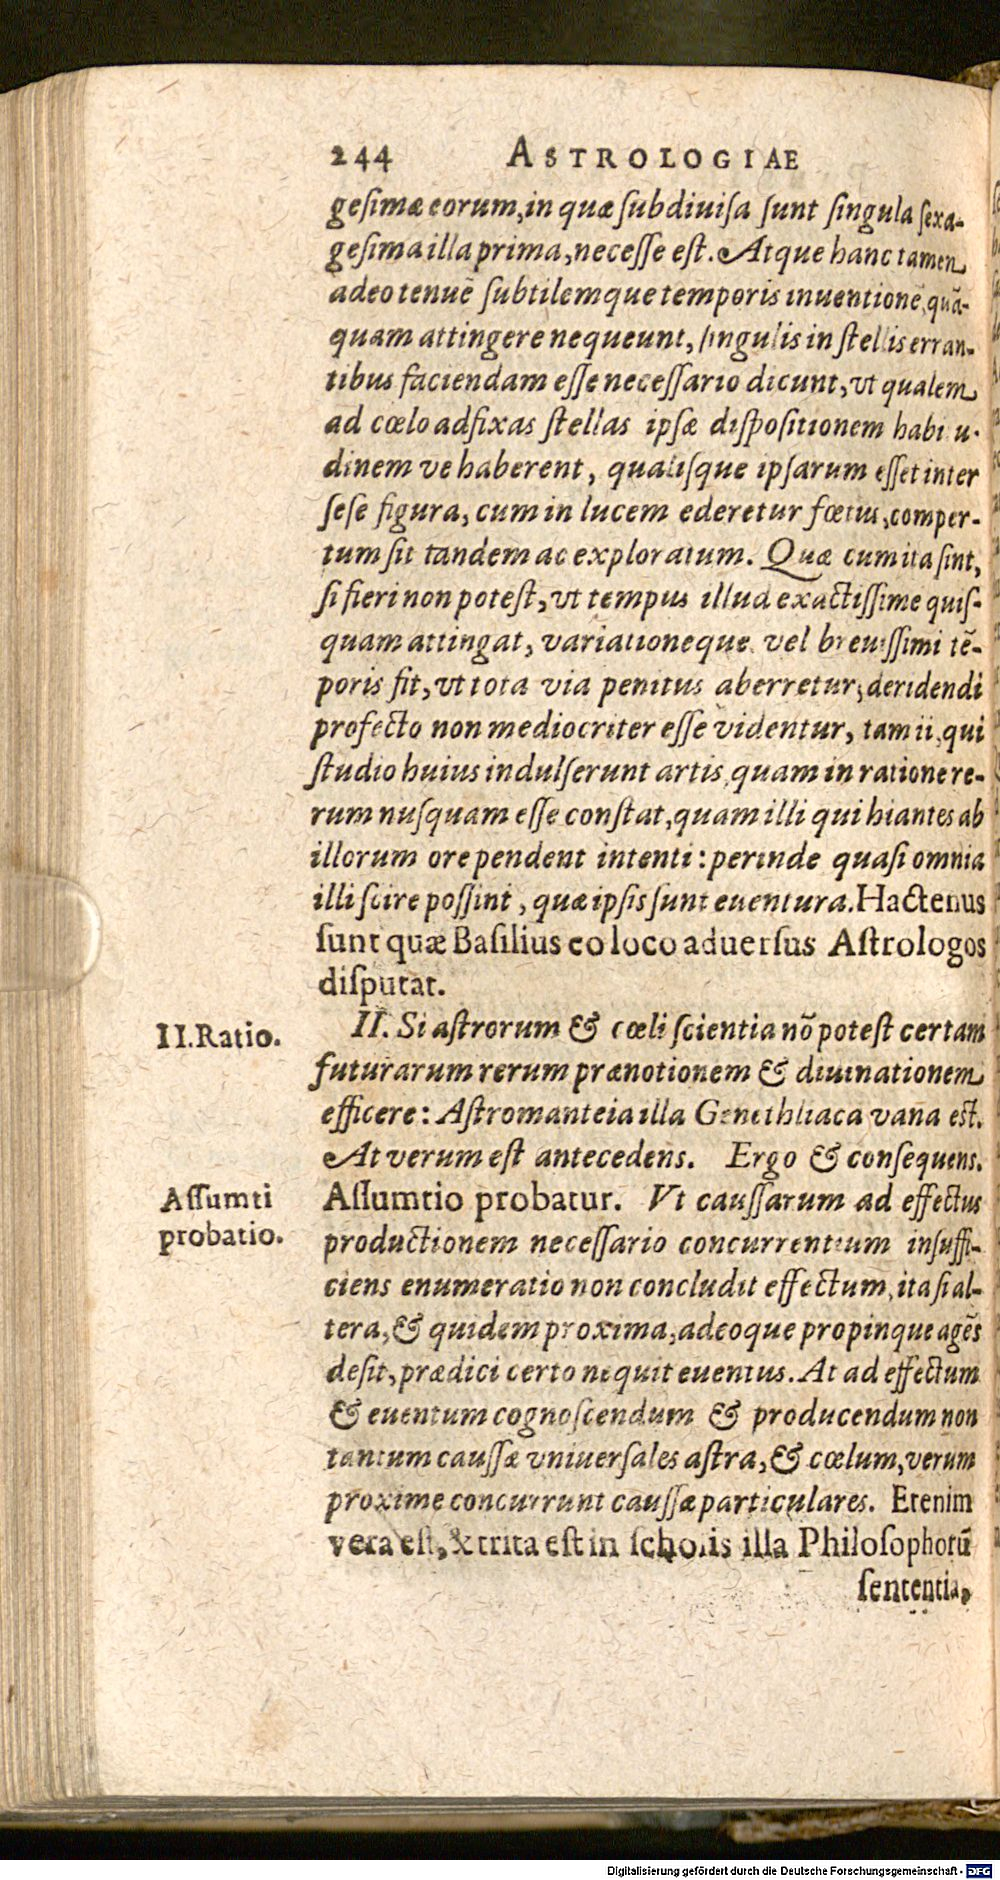 244 ASTROLOGIAE
gesimæ eorum, in quæ subdiuisa sunt singula sexa-
gesima illa prima, necesse est. Atque hanc tamen
adeo tenuē subtilemque temporis inuentionē, quā-
quam attingere nequeunt, singulis in stellis erran-
tibus faciendam esse necessario dicunt, vt qualem
ad cœlo adfixas stellas ipsæ dispositionem habitu-
dinem ve haberent, qualisque ipsarum esset inter
sese figura, cum in lucem ederetur fœtus, comper-
tum sit tandem ac exploratum. Quæ cum ita sint,
si fieri non potest, vt tempus illud exactissime quis-
quam attingat, variationeque vel breuissimi tē-
poris fit, vt tota via penitus aberretur; deridendi
profecto non mediocriter esse videntur, tam ii, qui
studio huius indulserunt artis, quam in ratione re-
rum nusquam esse constat, quam illi qui hiantes ab
illorum ore pendent intenti: perinde quasi omnia
illi scire possint, quæ ipsis sunt euentura. Hactenus
sunt quæ Basilius eo loco aduersus Astrologos
disputat.
II. Ratio.
II. Si astrorum & cœli scientia nō potest certam
futurarum rerum prænotionem & diuinationem
efficere: Astromanteia illa Genethliaca vana est.
At verum est antecedens. Ergo & consequens.
Assumti
probatio.
Assumtio probatur. Vt caussarum ad effectus
productionem necessario concurrentium insuffi-
ciens enumeratio non concludit effectum, ita si al-
tera, & quidem proxima, adeoque propinque agēs
desit, prædici certo nequit euentus. At ad effectum
& euentum cognoscendum & producendum non
tantum caussæ vniuersales astra, & cœlum, verum
proxime concurrunt caussæ particulares. Etenim
vera est, & trita est in scholis illa Philosophorū
sententia,
Digitalisierung gefördert durch die Deutsche Forschungsgemeinschaft - DFG